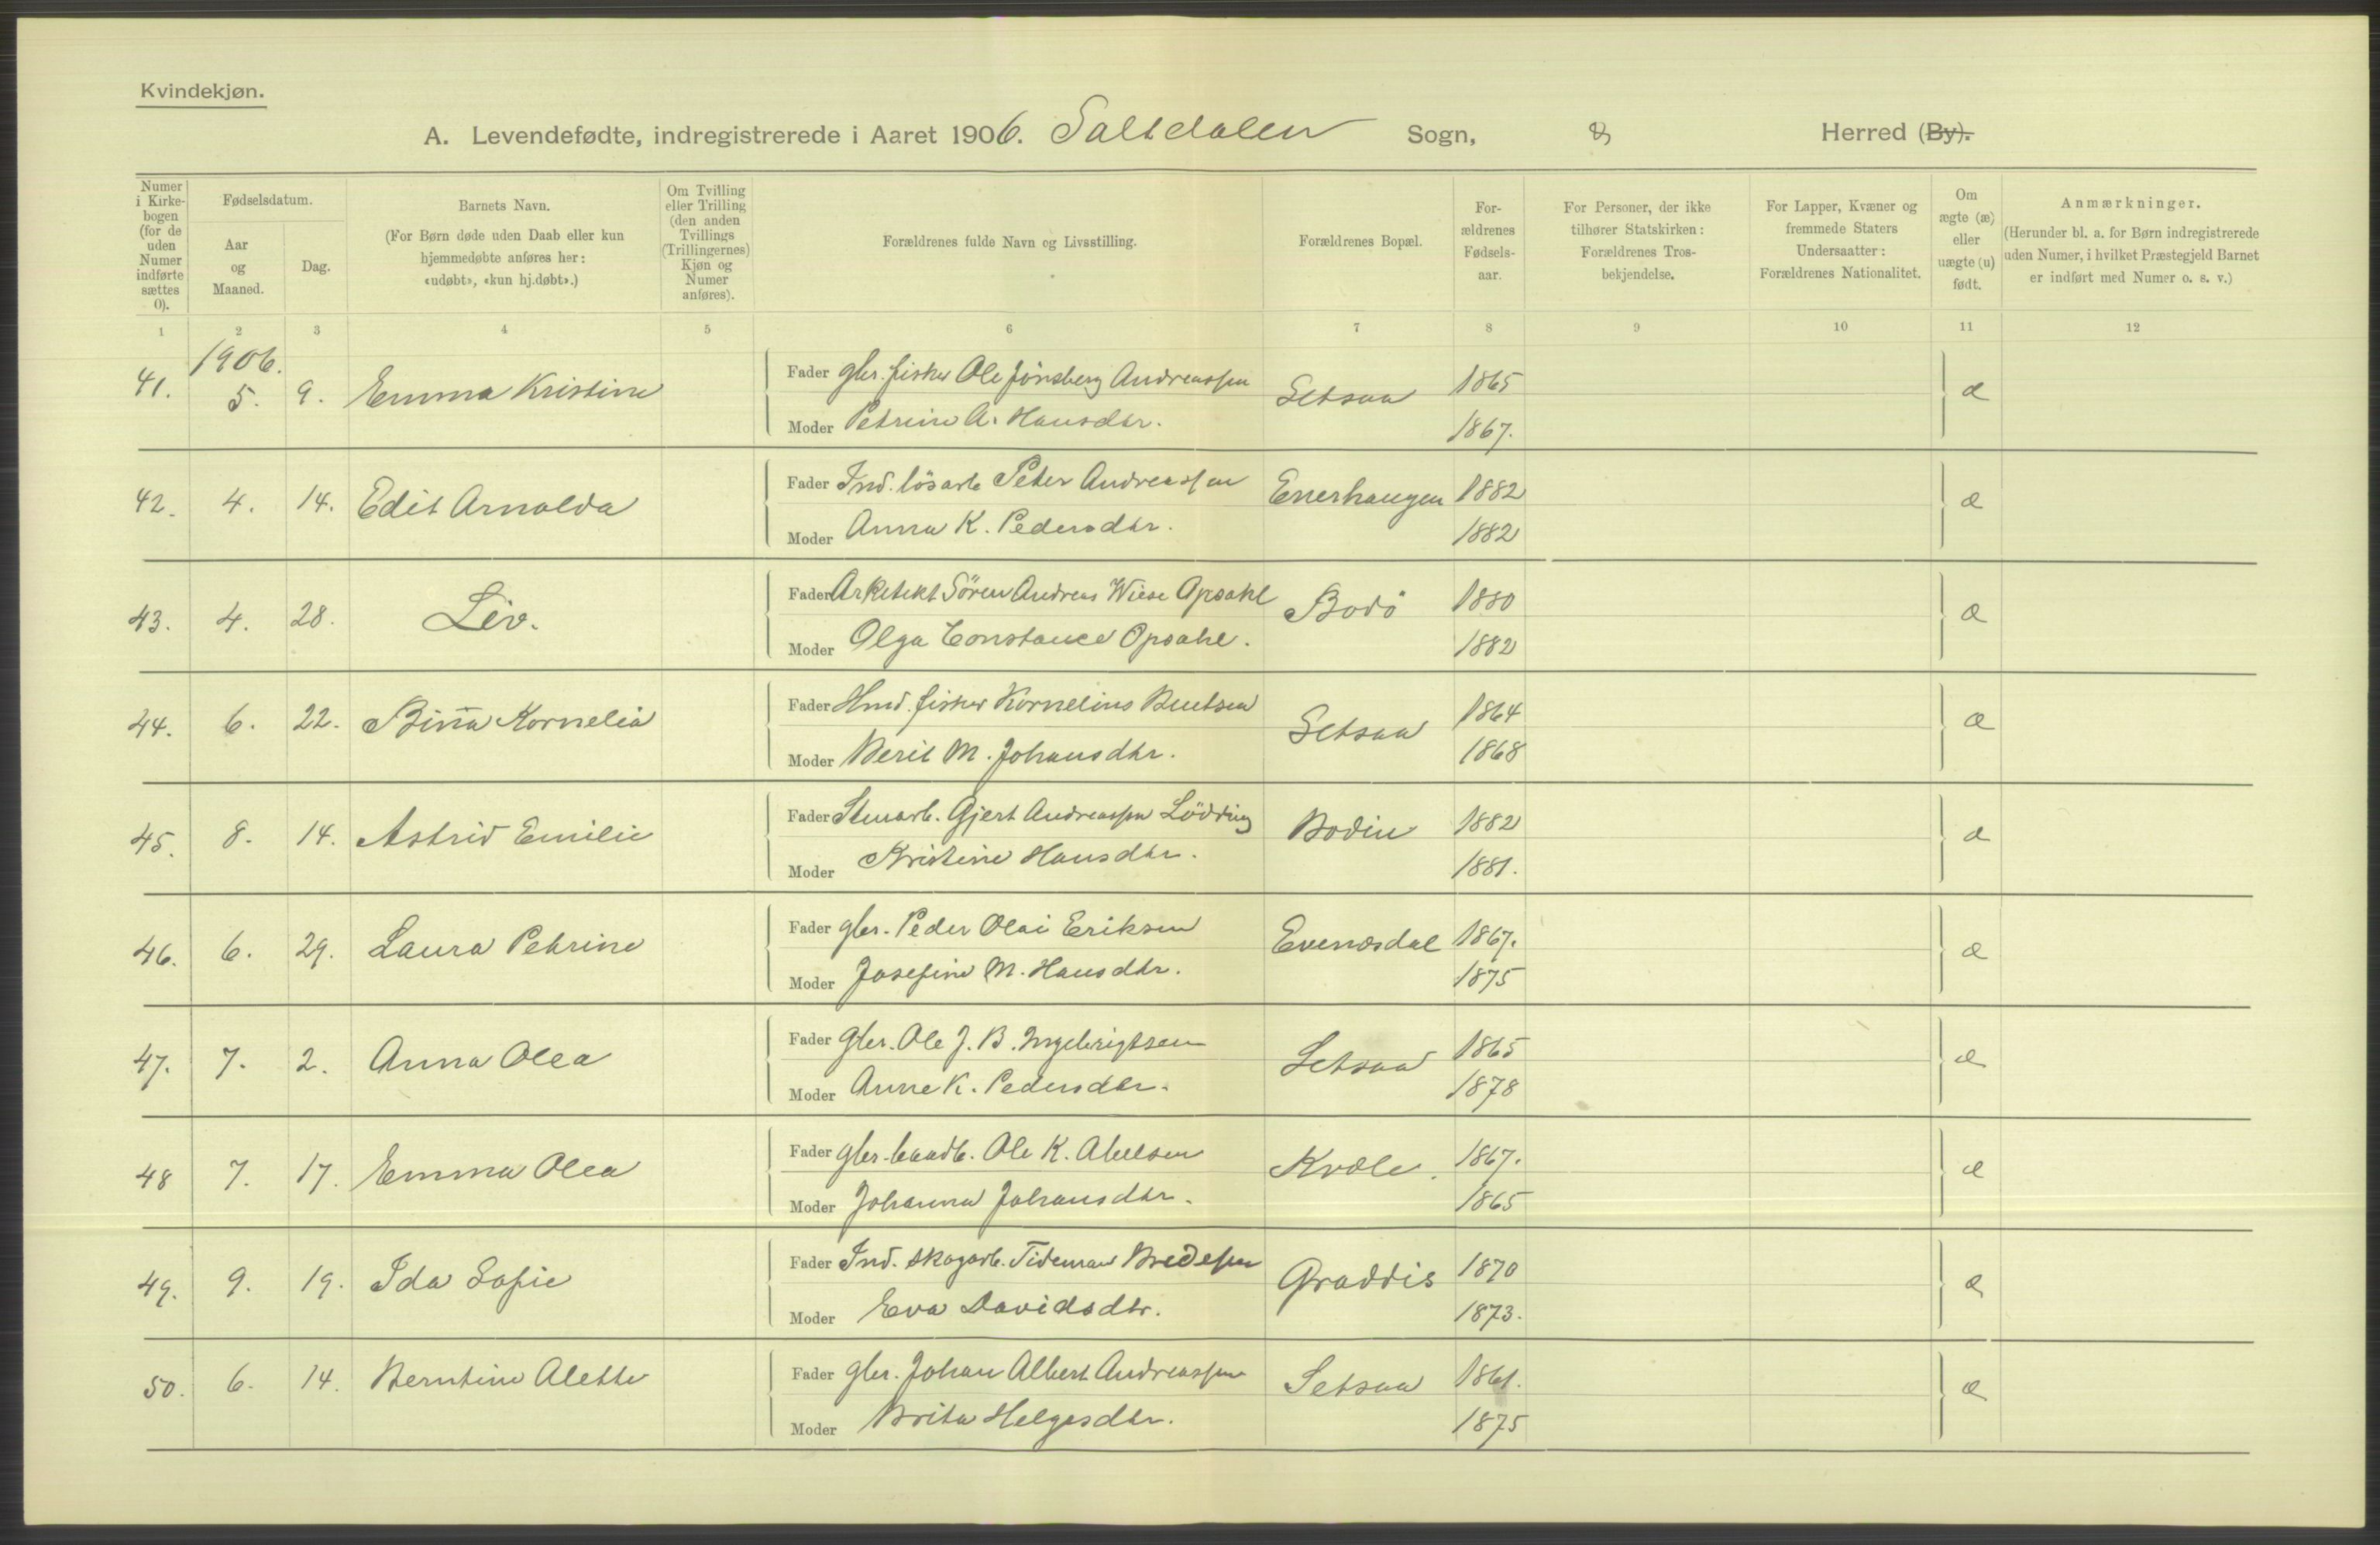 Kvindekjøn.
A. Levendefødte, indregistrerede i Aaret 1906. Saltdalen Sogn, Herred (By).
Numer i Kirkebogen (for de uden Numer indførte sættes 0).
Fødselsdatum.
Aar og Maaned.
Dag.
Barnets Navn.
(For Børn døde uden Daab eller kun hjemmedøbte anføres her: «udøbt», «kun hj.døbt».)
Om Tvilling eller Trilling (den anden Tvillings (Trillingernes) Kjøn og Numer anføres).
Forældrenes fulde Navn og Livsstilling.
Forældrenes Bopæl.
Forældrenes Fødselsaar.
For Personer, der ikke tilhører Statskirken: Forældrenes Trosbekjendelse.
For Lapper, Kvæner og fremmede Staters Undersaatter: Forældrenes Nationalitet.
Om ægte (æ) eller uægte (u) født.
Anmærkninger.
(Herunder bl. a. for Børn indregistrerede uden Numer, i hvilket Præstegjeld Barnet er indført med Numer o. s. v.)
1 2 3 4 5 6 7 8 9 10 11 12
1906.
41. 5. 9. Emma Kristine Fader gbr. fisker Ole Jönsberg Andreassen Setsaa 1865 æ
Moder Petrine A. Hansdtr. 1867.
42. 4. 14. Edit Arnolda Fader Ind. lösarb Peter Andreassen Enerhaugen 1882 æ
Moder Anna K. Pedersdtr. 1882
43. 4. 28. Liv. Fader Arkitekt Sören Andreas Wiese Opsahl Bodö 1880 æ
Moder Olga Constance Opsahl. 1882
44. 6. 22. Bina Kornelia Fader Hmd. fisker Kornelius Bentsen Setsaa 1864 æ
Moder Berit M. Johansdtr. 1868
45. 8. 14. Astrid Emilie Fader Stenarb. Gjert Andreassen Lödding Bodin 1882 æ
Moder Kristine Hansdtr. 1881.
46. 6. 29. Laura Petrine Fader gbr. Peder Olai Eriksen Evenesdal 1867. æ
Moder Josefine M. Hansdtr. 1875
47. 7. 2. Anna Olea Fader gbr. Ole J. B. Ingebrigtsen Setsaa 1865 æ
Moder Anne K. Pedersdtr. 1878
48 7. 17. Emma Olea Fader gbr. Ole K. Abelsen Kvæle. 1867. æ
Moder Johanna Johansdtr. 1865
49. 9. 19. Ida Sofie Fader Ind. skogarb. Tideman Bredesen Graddis 1870 æ
Moder Eva Davidsdtr. 1873.
50. 6. 14. Berntine Alette Fader gbr. Johan Albert Andreassen Setsaa 1861. æ
Moder Brita Helgesdtr. 1875